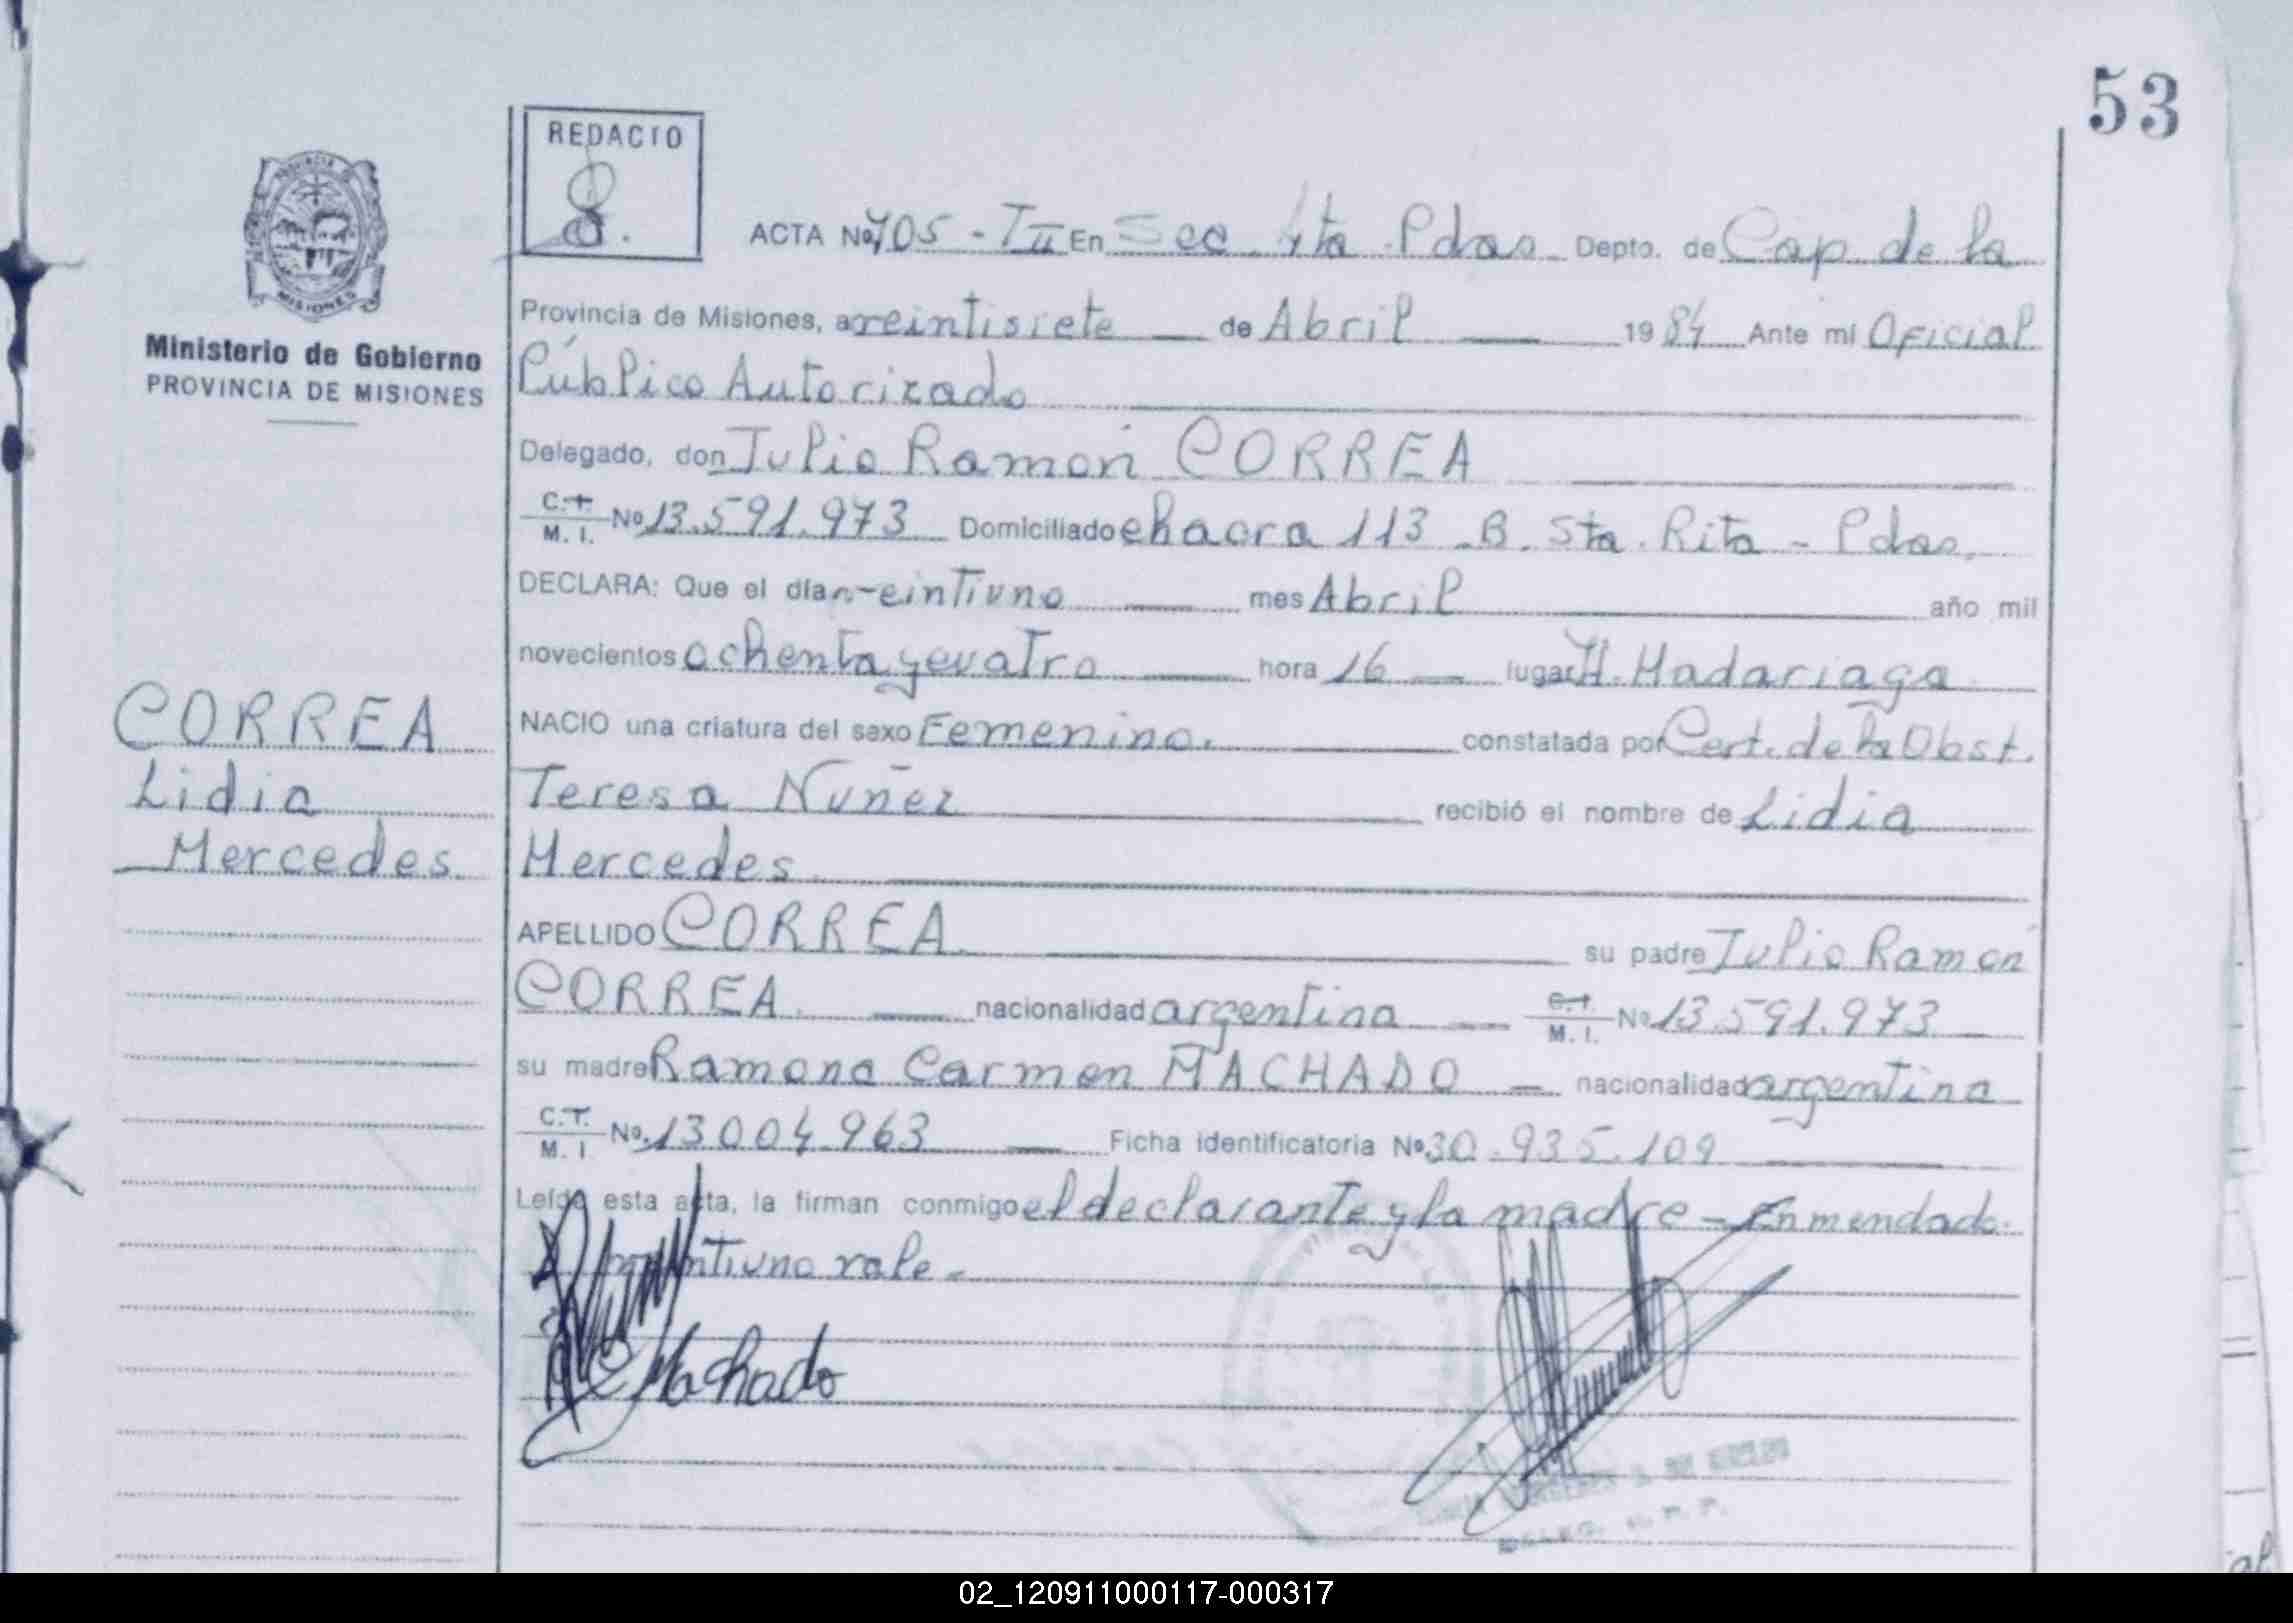 53
REDACTO
PROVINCIA DE
MISIONES
Ministerio de Gobierno
PROVINCIA DE MISIONES
ACTA Nº 705 - T II En Sec 4ta Pdas Depto. de Cap de la
Provincia de Misiones, a veintisiete de Abril 1984 Ante mi Oficial
Público Autorizado
Delegado, don Julio Ramón CORREA
C.I. M. I. Nº 13.591.973 Domiciliado chacra 113 - B. Sta. Rita - Pdas.
DECLARA: Que el día veintiuno mes Abril año mil
novecientos ochenta y cuatro hora 16 lugar H. Madariaga
NACIO una criatura del sexo Femenino. constatada por Cert. de la Obst.
Teresa Nuñez recibió el nombre de Lidia
Mercedes
APELLIDO CORREA su padre Julio Ramón
CORREA. nacionalidad argentina C.I. M. I. Nº 13.591.973
su madre Ramona Carmen MACHADO nacionalidad argentina
C.I. M. I. Nº 13.004.963 Ficha identificatoria Nº 30.935.109
Leída esta acta, la firman conmigo el declarante y la madre - Enmendado:
veintiuno vale -
Machado
CORREA
Lidia
Mercedes
DELEG. R. P. P.
02_120911000117-000317